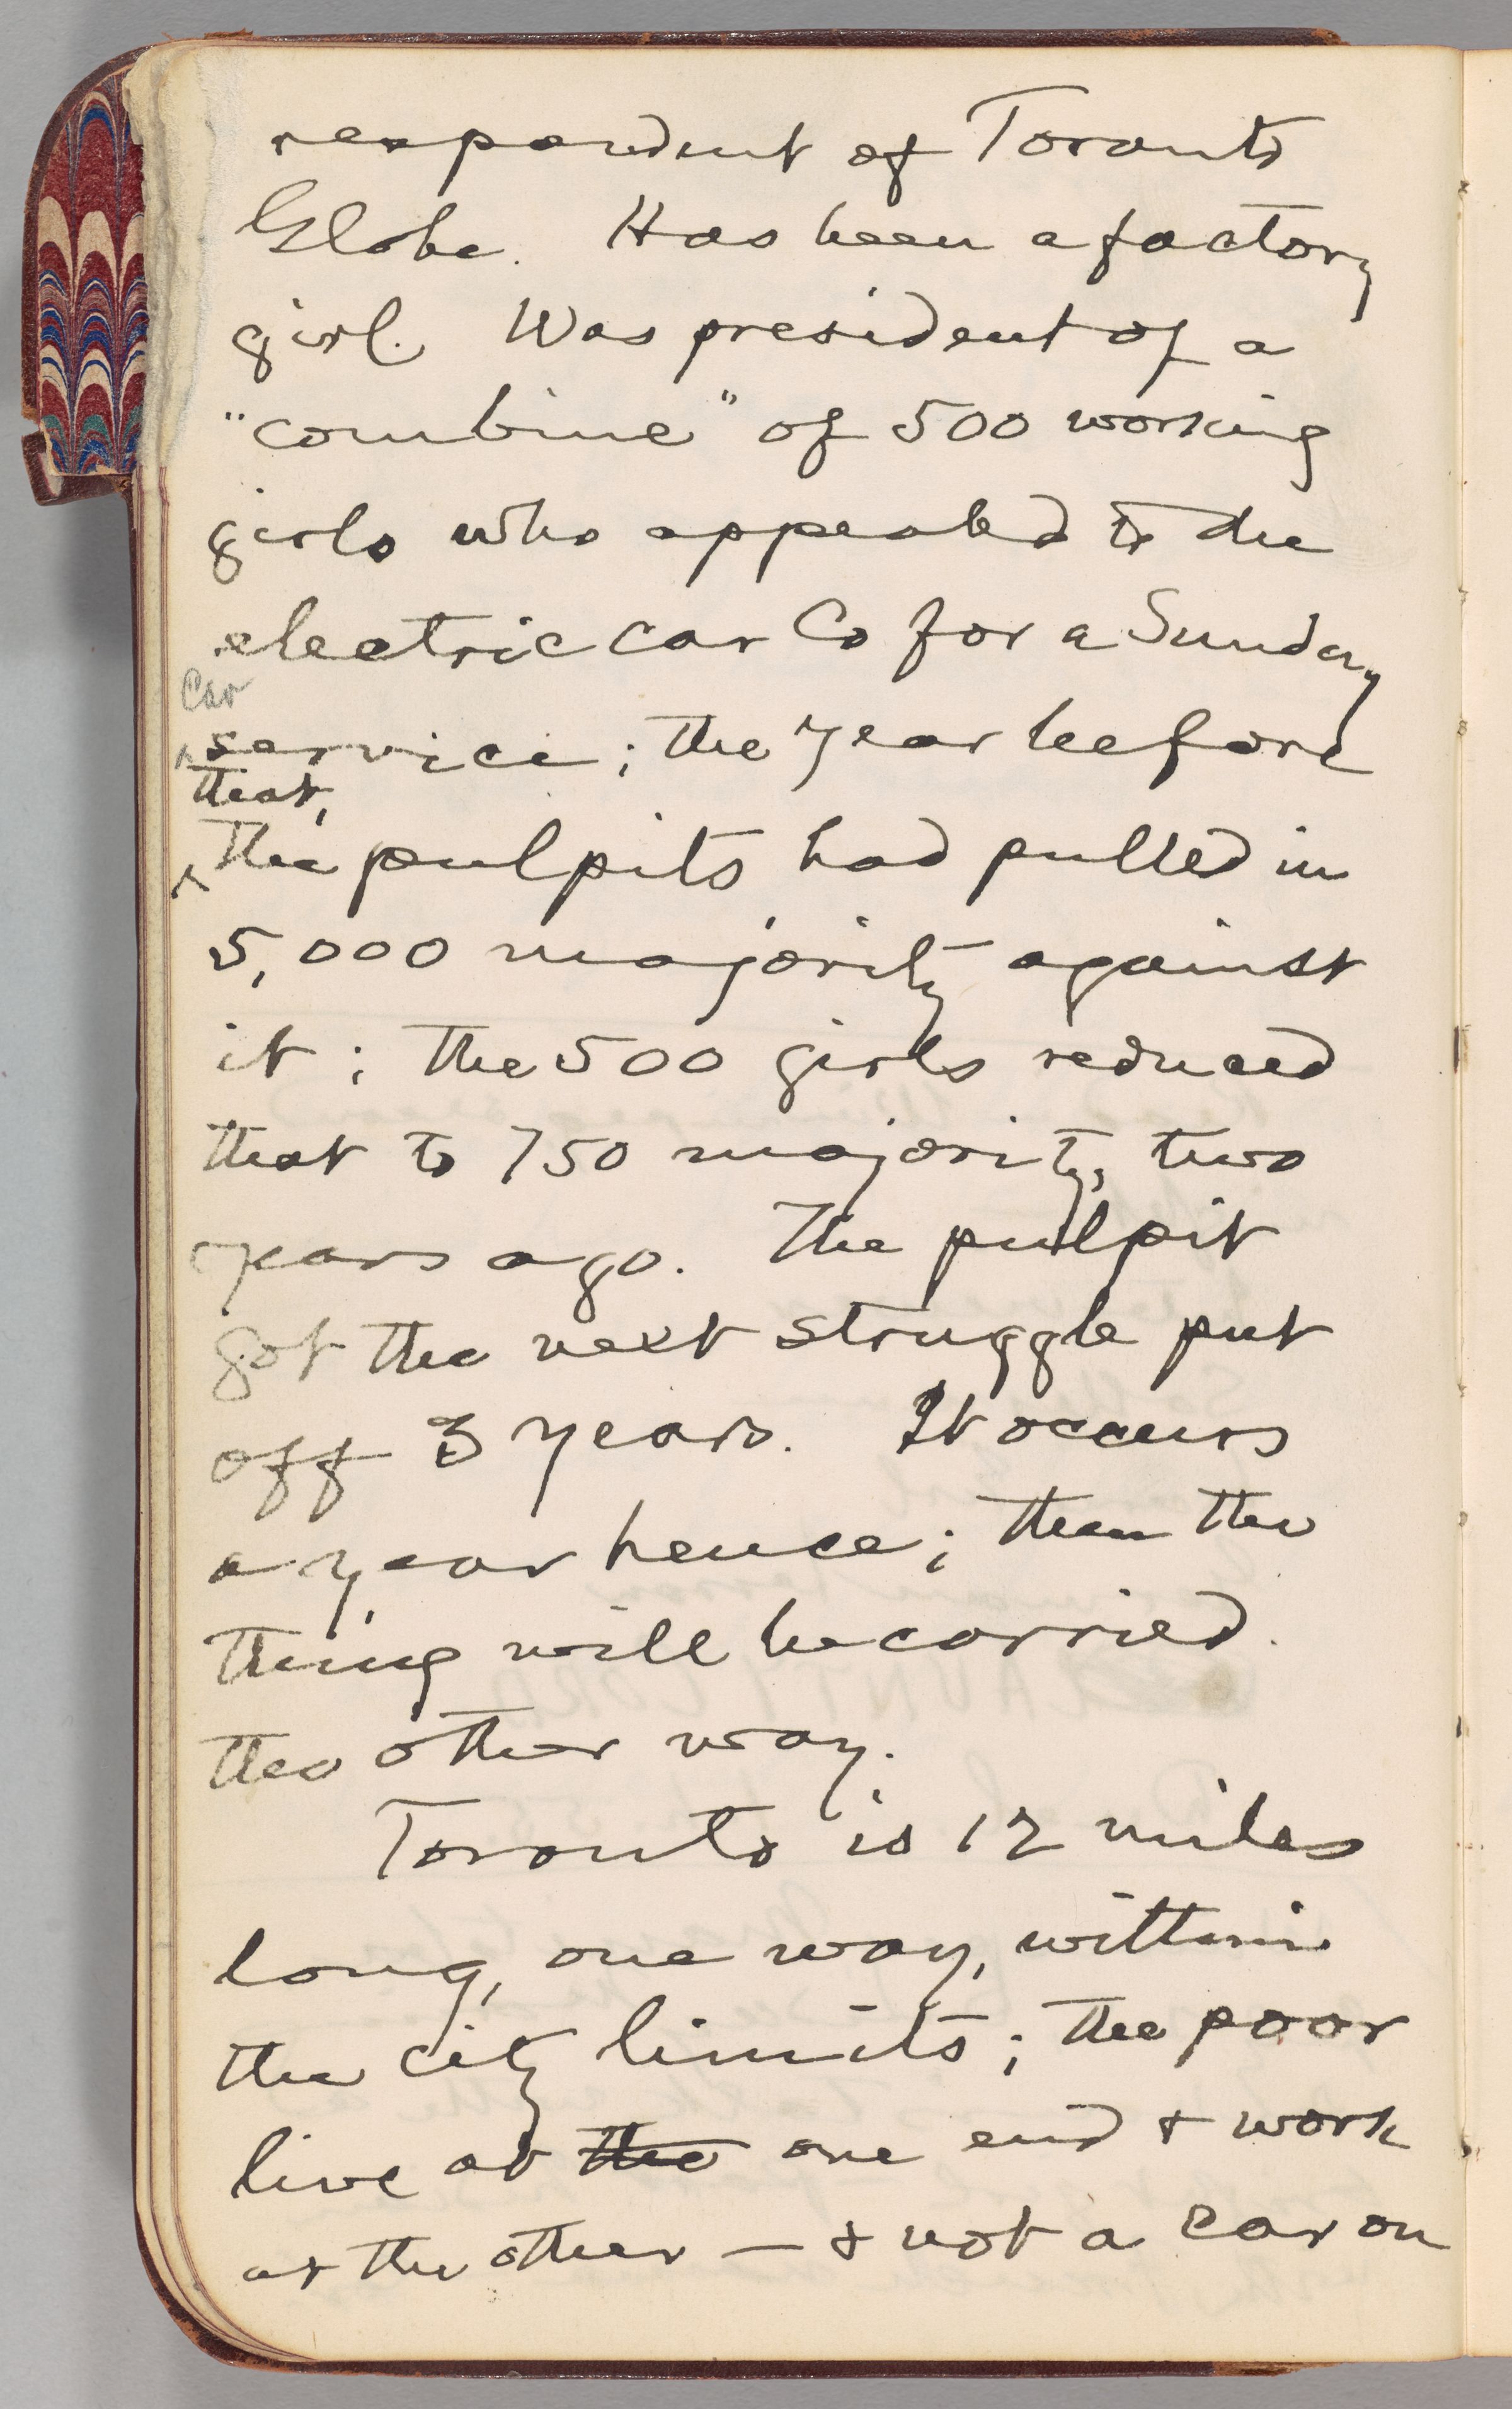 respondent of Toronto
Globe. Has been a factory
girl. Was president of a
"combine" of 500 working
girls who appealed to the
electric car Co for a Sunday
car
service; the year before
that,
the pulpits had pulled in
5,000 majority against
it; the 500 girls reduced
that to 750 majority, two
years ago. The pulpit
got the next struggle put
off 3 years. It occurs
a year hence; then the
thing will be carried
the other way.
Toronto is 12 miles
long, one way, within
the city limits; the poor
live at the one end & work
at the other — & not a car on